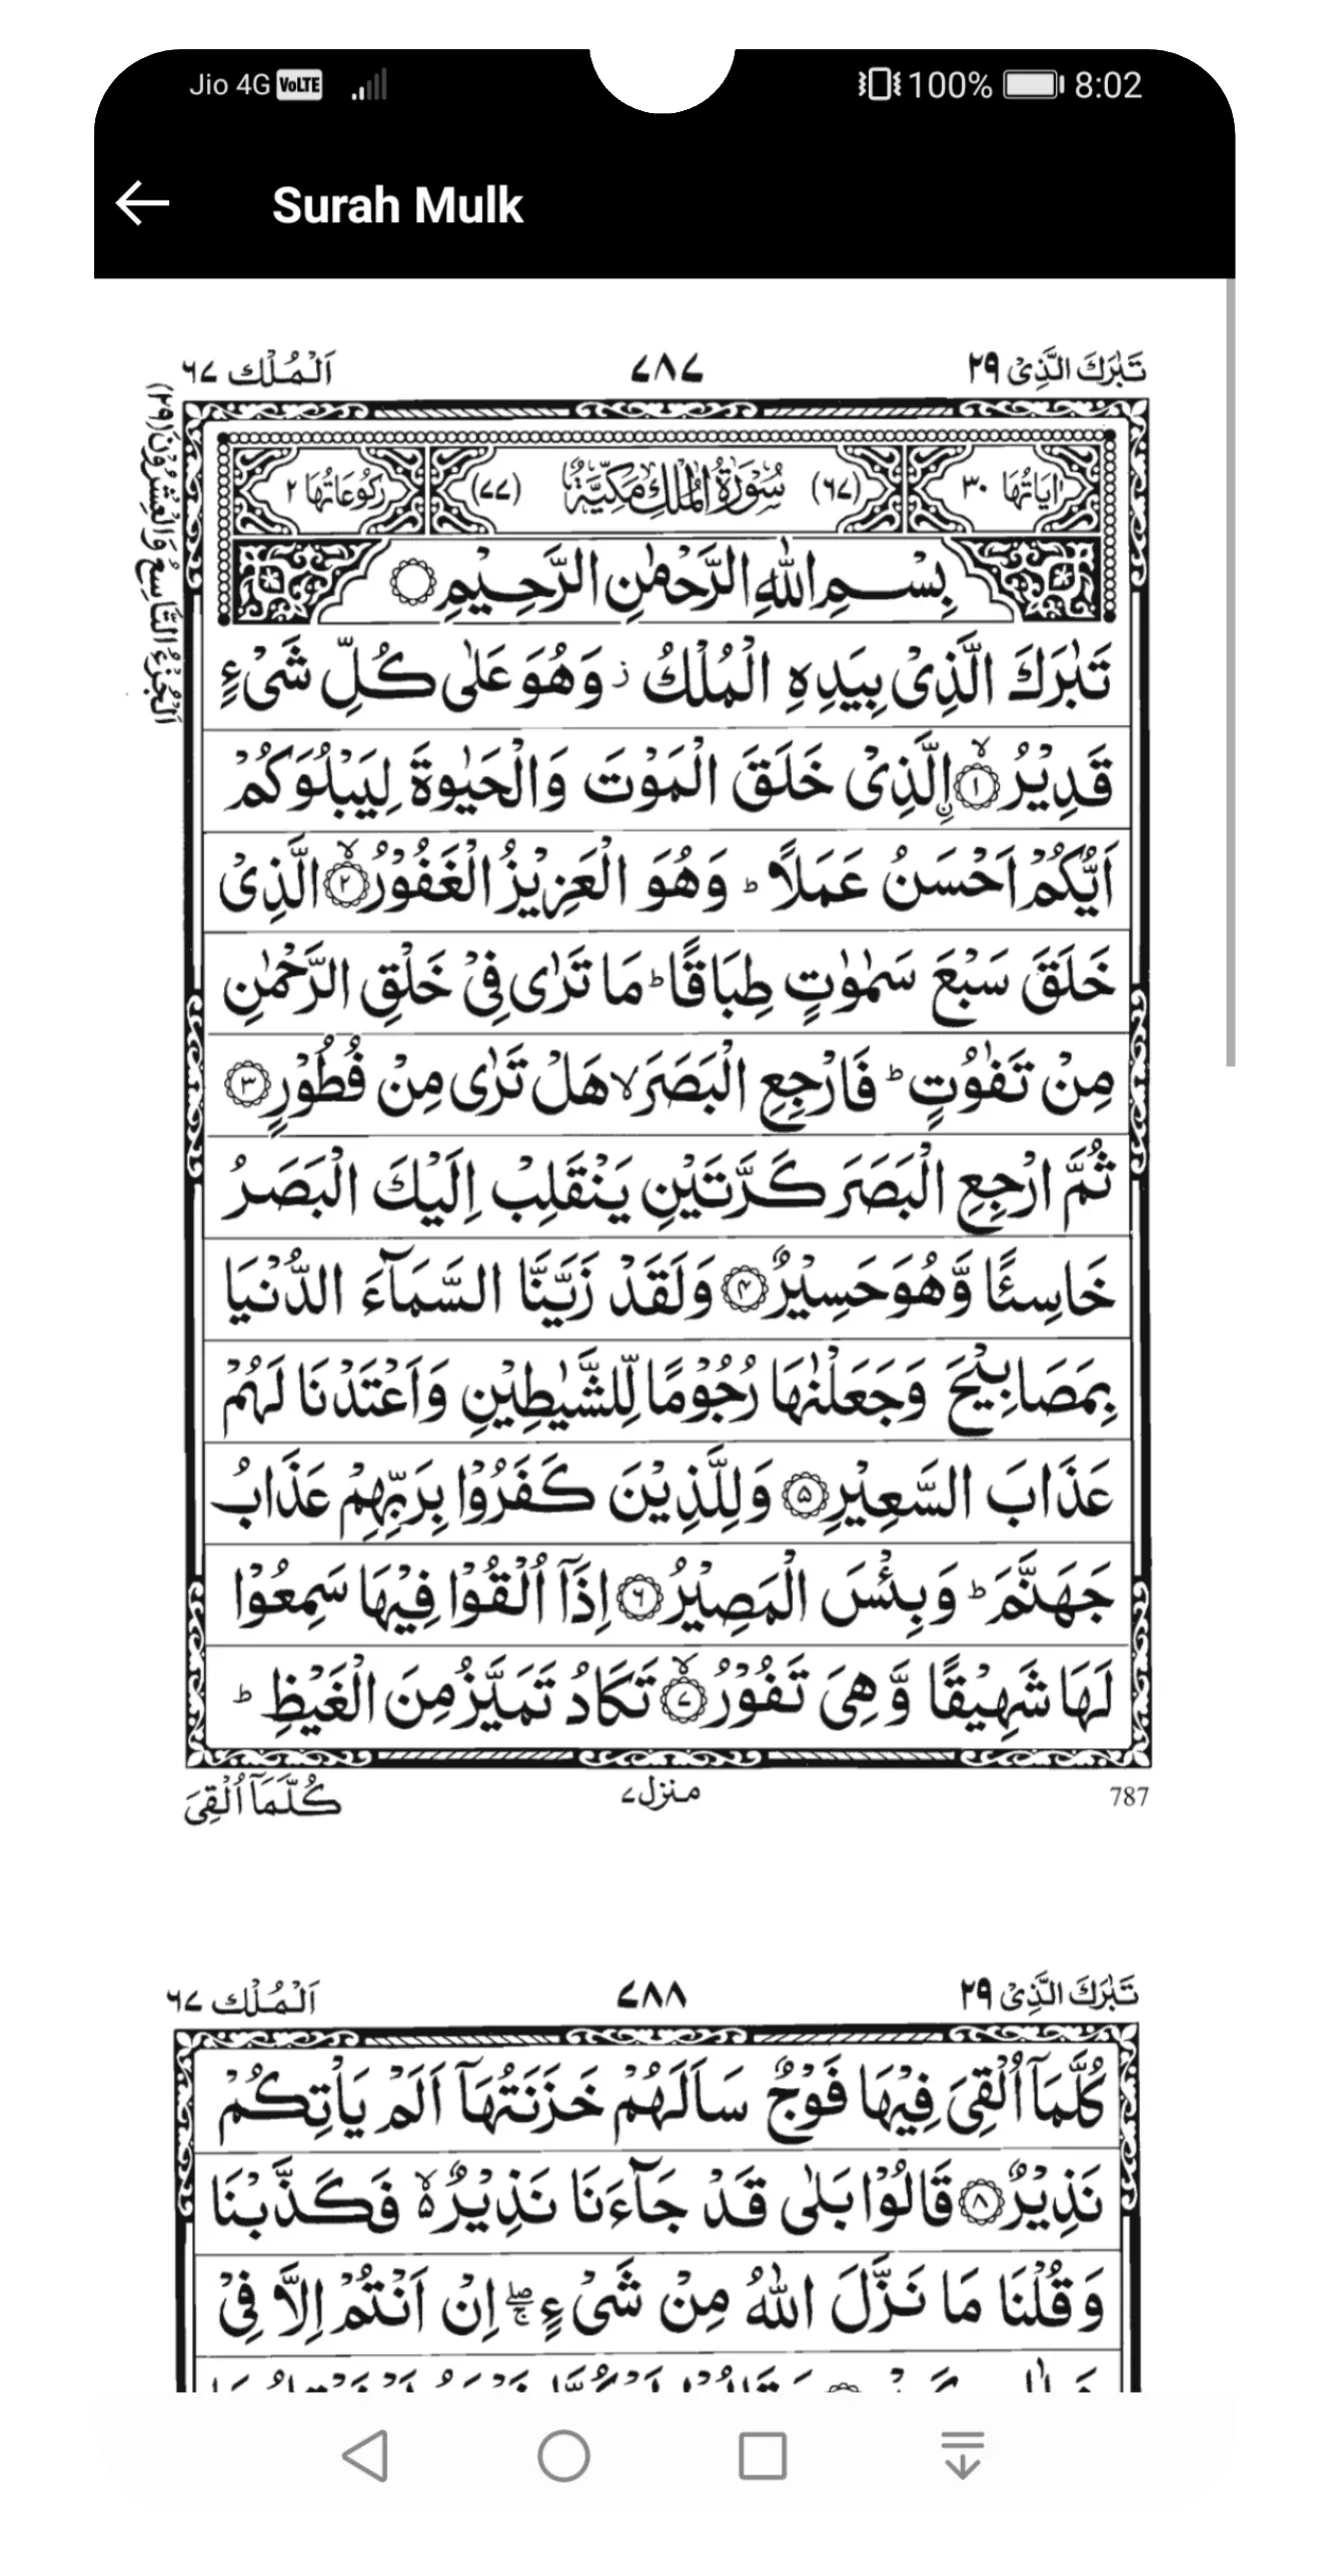 Jio 4G VoLTE 100% 8:02
Surah Mulk
تَبٰرَكَ الَّذِیْ ٢٩ ٧٨٧ اَلْمُلْك ٦٧
اَلْجُزْءُ التَّاسِعُ وَالْعِشْرُوْنَ (٢٩)
اٰيَاتُهَا ٣٠ (٦٧) سُوْرَةُ الْمُلْكِ مَكِّيَّةٌ (٧٧) رُكُوْعَاتُهَا ٢
بِسْمِ اللّٰهِ الرَّحْمٰنِ الرَّحِيْمِ
تَبٰرَكَ الَّذِیْ بِيَدِهِ الْمُلْكُ ز وَهُوَ عَلٰى كُلِّ شَیْءٍ
قَدِيْرُ ۙ﴿١﴾ اۨلَّذِیْ خَلَقَ الْمَوْتَ وَالْحَيٰوةَ لِيَبْلُوَكُمْ
اَيُّكُمْ اَحْسَنُ عَمَلًا ؕ وَهُوَ الْعَزِيْزُ الْغَفُوْرُ ۙ﴿٢﴾ الَّذِیْ
خَلَقَ سَبْعَ سَمٰوٰتٍ طِبَاقًا ؕ مَا تَرٰى فِیْ خَلْقِ الرَّحْمٰنِ
مِنْ تَفٰوُتٍ ؕ فَارْجِعِ الْبَصَرَ ۙ هَلْ تَرٰى مِنْ فُطُوْرٍ ﴿٣﴾
ثُمَّ ارْجِعِ الْبَصَرَ كَرَّتَيْنِ يَنْقَلِبْ اِلَيْكَ الْبَصَرُ
خَاسِئًا وَّهُوَ حَسِيْرٌ ﴿٤﴾ وَلَقَدْ زَيَّنَّا السَّمَآءَ الدُّنْيَا
بِمَصَابِيْحَ وَجَعَلْنٰهَا رُجُوْمًا لِّلشَّيٰطِيْنِ وَاَعْتَدْنَا لَهُمْ
عَذَابَ السَّعِيْرِ ﴿٥﴾ وَلِلَّذِيْنَ كَفَرُوْا بِرَبِّهِمْ عَذَابُ
جَهَنَّمَ ؕ وَبِئْسَ الْمَصِيْرُ ﴿٦﴾ اِذَآ اُلْقُوْا فِيْهَا سَمِعُوْا
لَهَا شَهِيْقًا وَّهِیَ تَفُوْرُ ۙ﴿٧﴾ تَكَادُ تَمَيَّزُ مِنَ الْغَيْظِ ؕ
787 منزل ٧ كُلَّمَآ اُلْقِیَ
تَبٰرَكَ الَّذِیْ ٢٩ ٧٨٨ اَلْمُلْك ٦٧
كُلَّمَآ اُلْقِیَ فِيْهَا فَوْجٌ سَاَلَهُمْ خَزَنَتُهَآ اَلَمْ يَاْتِكُمْ
نَذِيْرٌ ﴿٨﴾ قَالُوْا بَلٰى قَدْ جَآءَنَا نَذِيْرٌ ۙ۬ فَكَذَّبْنَا
وَقُلْنَا مَا نَزَّلَ اللّٰهُ مِنْ شَیْءٍ ۖۚ اِنْ اَنْتُمْ اِلَّا فِیْ